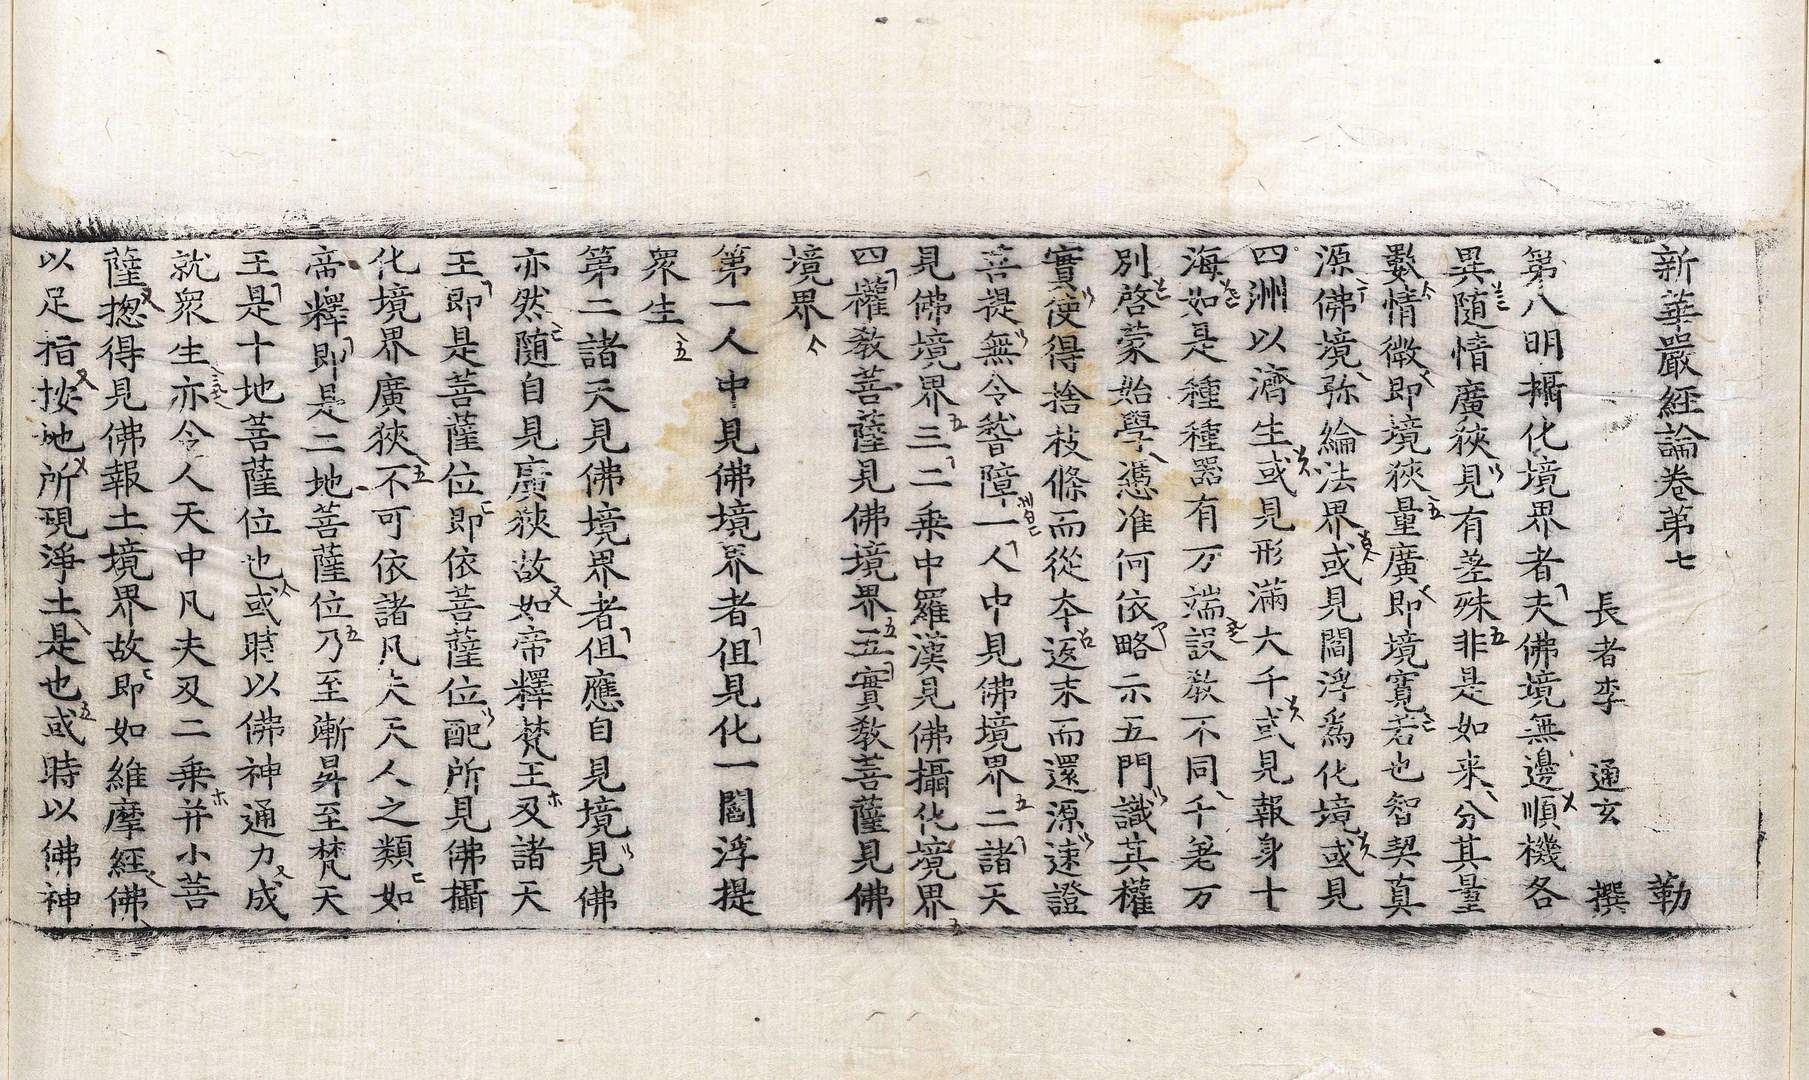 新華嚴經論卷第七　勒
長者李　通玄　撰
第八明攝化境界者夫佛境無邊順機各
異随情廣狹見有差殊非是如来分其量
數情微即境狹量廣即境寛若也智契真
源佛境弥綸法界或見閻浮爲化境或見
四洲以濟生或見形滿大千或見報身十
海如是種種器有万端設教不同千差万
別啓蒙始學憑准何依略示五門識其權
實使得捨枝條而從夲返末而還源速證
菩提無令諬障一人中見佛境界二諸天
見佛境界三二乗中羅漢見佛攝化境界
四權教菩薩見佛境界五實教菩薩見佛
境界
第一人中見佛境界者但見化一閻浮提
衆生
第二諸天見佛境界者但應自見境見佛
亦然随自見廣狹故如帝釋梵王及諸天
王即是菩薩位即依菩薩位配所見佛攝
化境界廣狹不可依諸凡夫天人之類如
帝釋即是二地菩薩位乃至漸昇至梵天
王是十地菩薩位也或時以佛神通力成
就衆生亦令人天中凡夫及二乗并小菩
薩揔得見佛報土境界故即如維摩經佛
以足指按地所現淨土是也或時以佛神